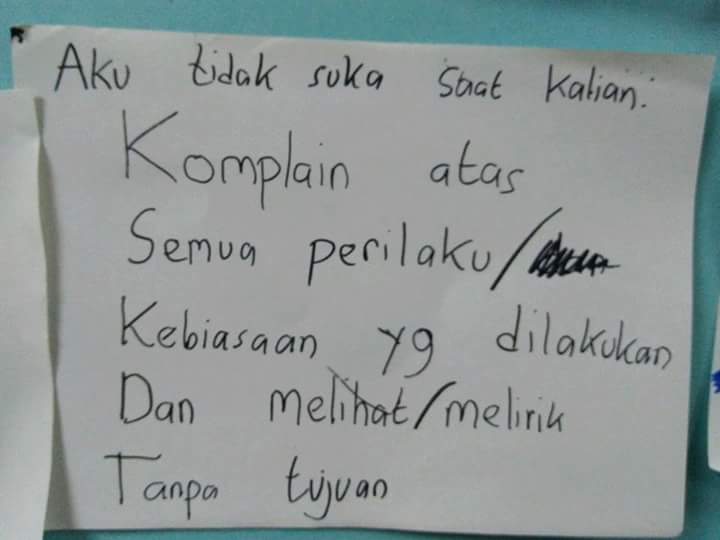 Aku tidak suka saat kalian:
Komplain atas
Semua perilaku/
Kebiasaan yg dilakukan
Dan melihat/melirik
Tanpa tujuan